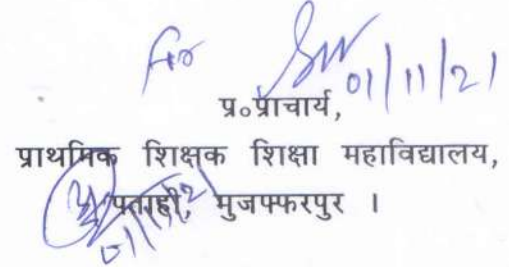 For
01/11/21
प्र०प्राचार्य,
प्राथमिक शिक्षक शिक्षा महाविद्यालय,
पताही, मुजफ्फरपुर ।